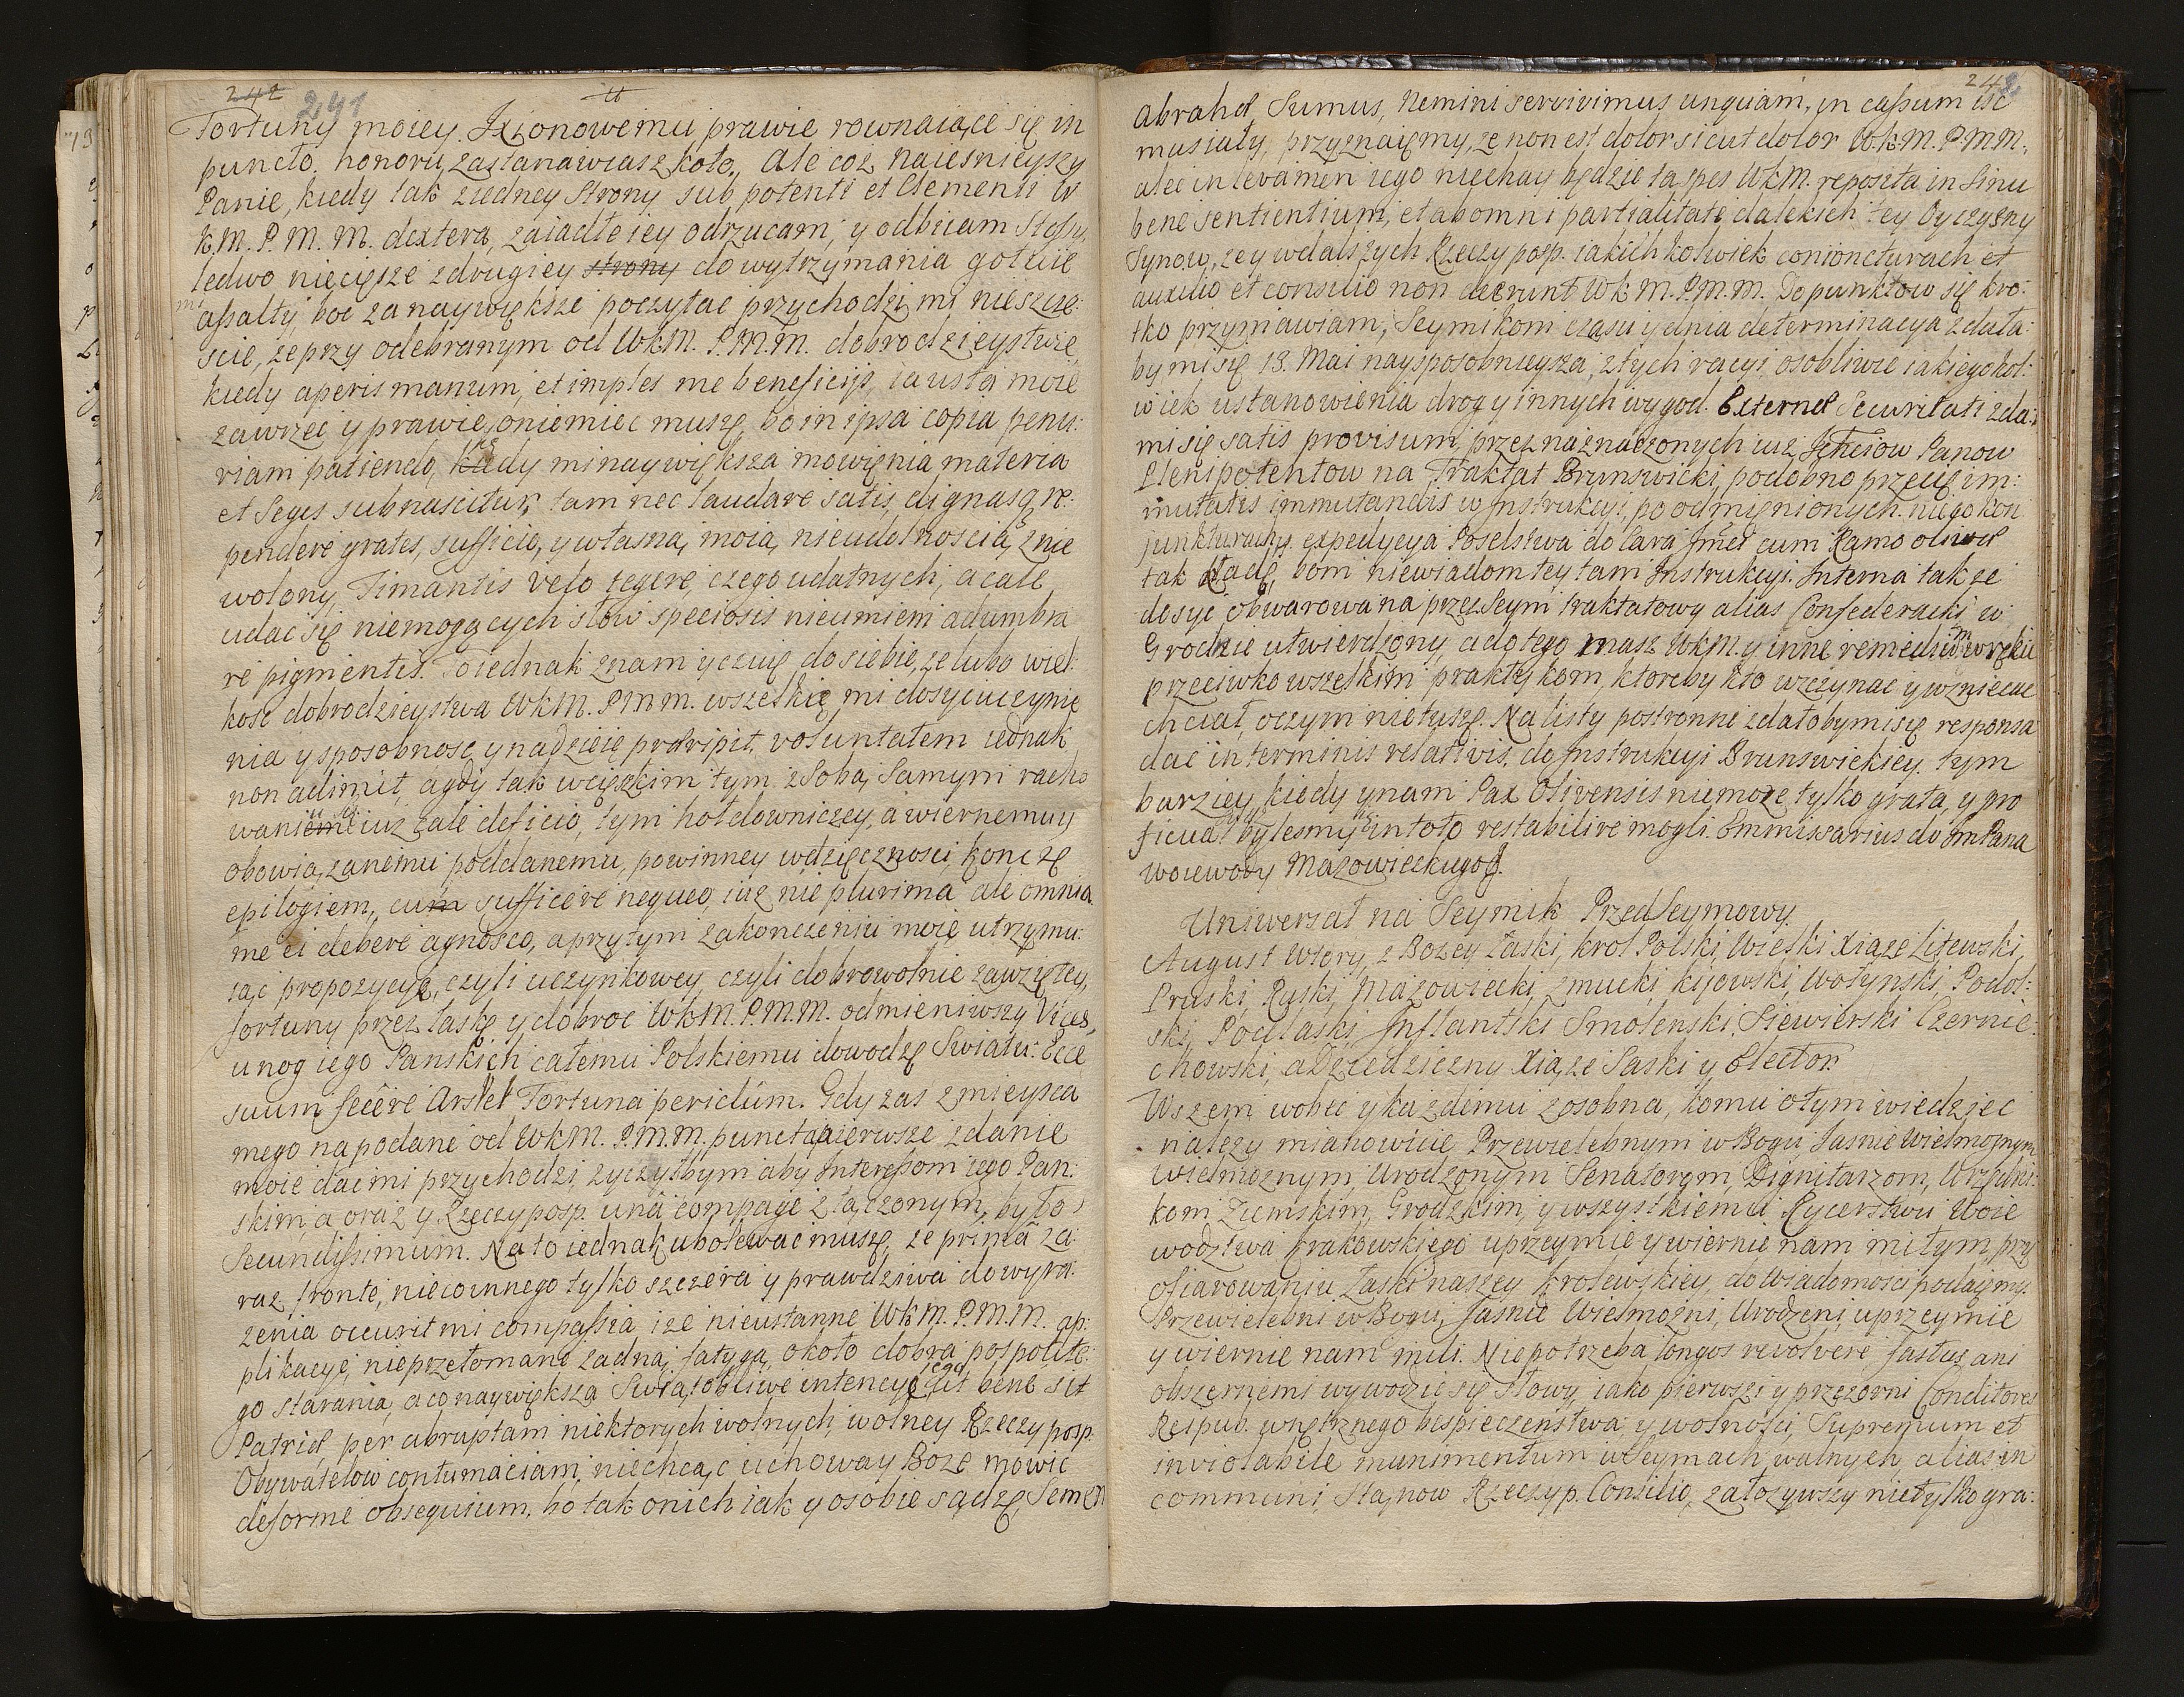 242 241
Fortuny moiey Ixionowemu prawie rownaiące się in
puncto honoru zastanawiasz koło. Ale coż Naiesnieyszy
Panie, kiedy tak z iedney strony sub potenti et Clementi W
K.M. P. M. M. dextera, zaiadłe iey odrzucam, y odbiiam
ledwo nięcięsze z drugiey strony do wytrzymania gotuie
assalty, boć za naywiększe poczytac przychodzi mi nieszczę:
scie, że przy odebranym od WKM. P.M.M. dobrodzieystwie,
kiedy aperis manum, et imples me beneficijs, ia usta moie
zawrzec y prawie oniemiec muszę, bo in ipsa copia penu:
riam patiendo, kiedy mi naywiększa mowienia materia
et Seges subnascitur, tam nec laudare satis, dignasq re:
pendere grates, sufficio, y własną moią nieudolnoscią znie
wolony, Timantis velo tegere, czego udatnych, a cale
udac się niemogących słow speciosis nieumiem adumbra
re pigmentis. To iednak znam y czuię do siebie, że lubo wiel:
kosc dobrodzieystwa WKM. PMM. wszelkię mi dosyc uczynie
nia y sposobnosc y nadzieię praeripit, voluntatem iednak
non adimit, a gdy tak w cięszkim tym z sobą samym racho
waniem iuż cale deficio, tym hołdowniczey, a wiernemu y
obowiązanemu poddanemu, powinney wdzięcznosci, konczę
epilogiem, cum sufficere nequeo, iuż nie plurima ale omnia
me ei debere agnosco, a przytym zakonczeniu moię utrzymu:
iąc propozycyę, czyli uczynkowey, czyli dobrowolnie zawziętey,
fortuny przez łaskę y dobroc WKM. P.M.M. odmieniwszy Vices,
u nog iego Panskich całemu Polskiemu dowodzę Swiatu: Ecce
suum fecere Ars et Fortuna periclum. Gdy zas z mieysca
mego na podane od WKM. P.M.M. puncta pierwsze zdanie
moie dac mi przychodzi, życzyłbym aby Interessom iego Pan:
skim, a oraz y Rzeczyposp. una compage złączonym, było
Secundissimum. Na to iednak ubolewac muszę, że prima za:
raz fronte, nieco innego tylko szczera y prawdziwa do wyra:
żenia occurit mi compassia iże nieustanne WKM. P.M.M. ap:
plikacye, nieprzełomane żadną fatygą, około dobra pospolite:
go starania, a co naywiększa Swiątobliwe intencye iego ut bene sit
Patriae, per abruptam niektorych wolnych, wolney Rzeczyposp.
Obywatelow contumaciam, niechcąc uchoway Boże mowic
deforme obsequium, bo tak o nich iak y o sobie sądzę, Semen
242
Abrahae Sumus, Nemini servivimus unquam, in cassum isc
musiały, przyznaięmy, że non est dolor sicut dolor W.K.M. P.M.M.,
alec in levamen iego niechay będzie ta spes WKM. reposita in Sinu
bene sentientium, et ab omni partialitate dalekich tey Oyczyzny
Synow, że y w dalszych Rzeczyposp. iakichkolwiek conioncturach et
auxilio et consilio non deerunt WKM. P.M.M. Do punktow się kro:
tko przymawiam, Seymikom czasu y dnia determinacya zdała:
by mi się 13. Mai naysposobnieysza, z tych racyi, osobliwie iakiegokol:
wiek ustanowienia drog y innych wygod. Externae Securitati zda:
mi się satis provisum przez naznaczonych iuż Ichciow Panow
Plenipotentow na Traktat Brunswicki, podobno przecię im:
mutatis immutandis w Instrukcyi, po odmięnionych niego kon
junkturachs. expedycya Poselstwa do Cara Imci cum Ramo olivae
tak kładę, bom niewiadom tey tam Instrukcyi. Interna także
dosyc obwarowana przez Seym traktatowy alias Confederacki w
Grodnie utwierdzony, a do tego masz WKM. y inne remedium w ręku
przeciwko wszelkim praktykom, ktoreby kto wszczynac y wzniecac
chciał, o czym nietuszę. Na listy postronne zdałoby mi się responsa
dac in terminis relativis do Instrukcyi Brunswickiey, tym
barziey, kiedy y nam Pax Olivensis niemoże tylko grata, y pro
ficua bylesmy in toto restabilire mogli. Emmissarius do Im Pana
Woiewody Mazowieckiego.
Uniwersał na Seymik PrzedSeymowy.
August Wtory, z Bożey łaski, krol Polski, Wielki Xiąże Litewski,
Pruski, Ruski, Mazowiecki, Zmucki, kijowski, Wołynski, Podol:
ski, Podlaski, Inflantski Smolenski, Siewierski Czernie:
chowski, a Dziedziczny Xiąże Saski y Elector.
Wszem wobec y każdemu z osobna, komu o tym wiedziec
należy mianowicie Przewielebnym w Bogu, Jasnie Wielmożnym
Wielmożnym, Urodzonym Senatorom, Dignitarzom, Urzędni:
kom Ziemskim, Grodzkim, y wszystkiemu Rycerstwu Woie
wodztwa Krakowskiego uprzeymie y wiernie nam miłym, przy
ofiarowaniu łaski naszey krolewskiey, do Wiadomosci podaięmy.
Przewielebni w Bogu, Jasnie Wielmożni, Urodzeni, uprzeymie
y wiernie nam mili. Nie potrzeba longos revolvere fastus, ani
obszernemi wywodzic się słowy, iako pierwszi y przezorni Conditores
Reipub. wnętrznego bespieczenstwa y wolnosci, Supremum et
inviolabile munimentum w Seymach walnych alias in
communi Stanow Rzeczyp. Consilio, założywszy nietylko gra: